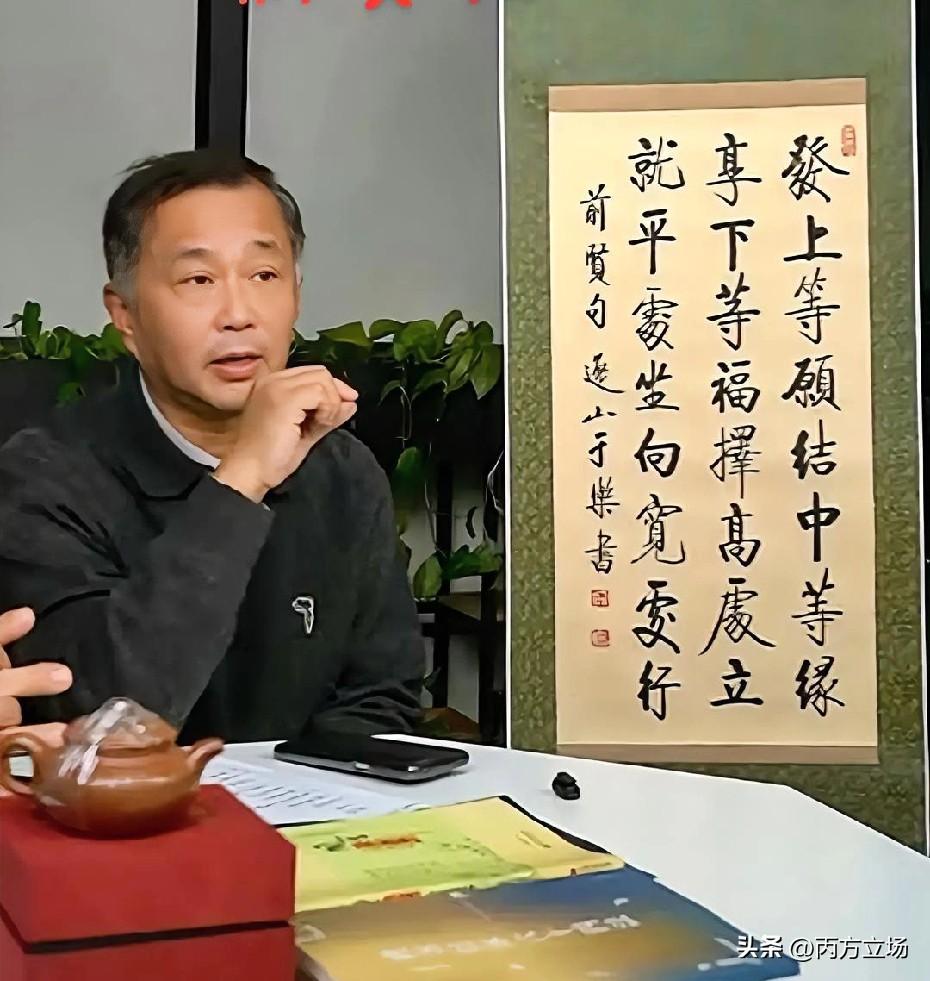 發上等願結中等緣
享下等福擇高處立
就平處坐向寬處行
前賢句 山于樂書
头条 @丙方立场